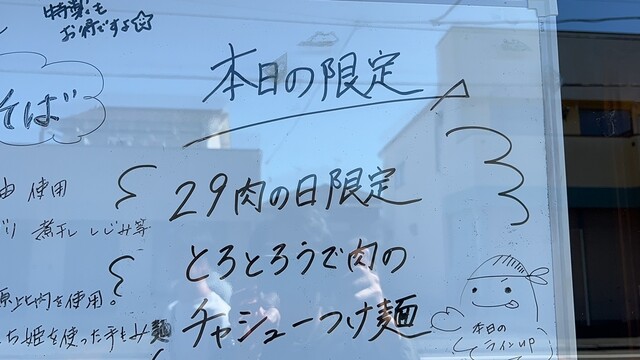 特製も
お得ですよ☆
そば
本日の限定
29肉の日限定
とろとろうで肉の
チャシューつけ麺
油使用
煮干ししじみ等
比内を使用。
姫を使った手もみ麺
本日の
ラインup